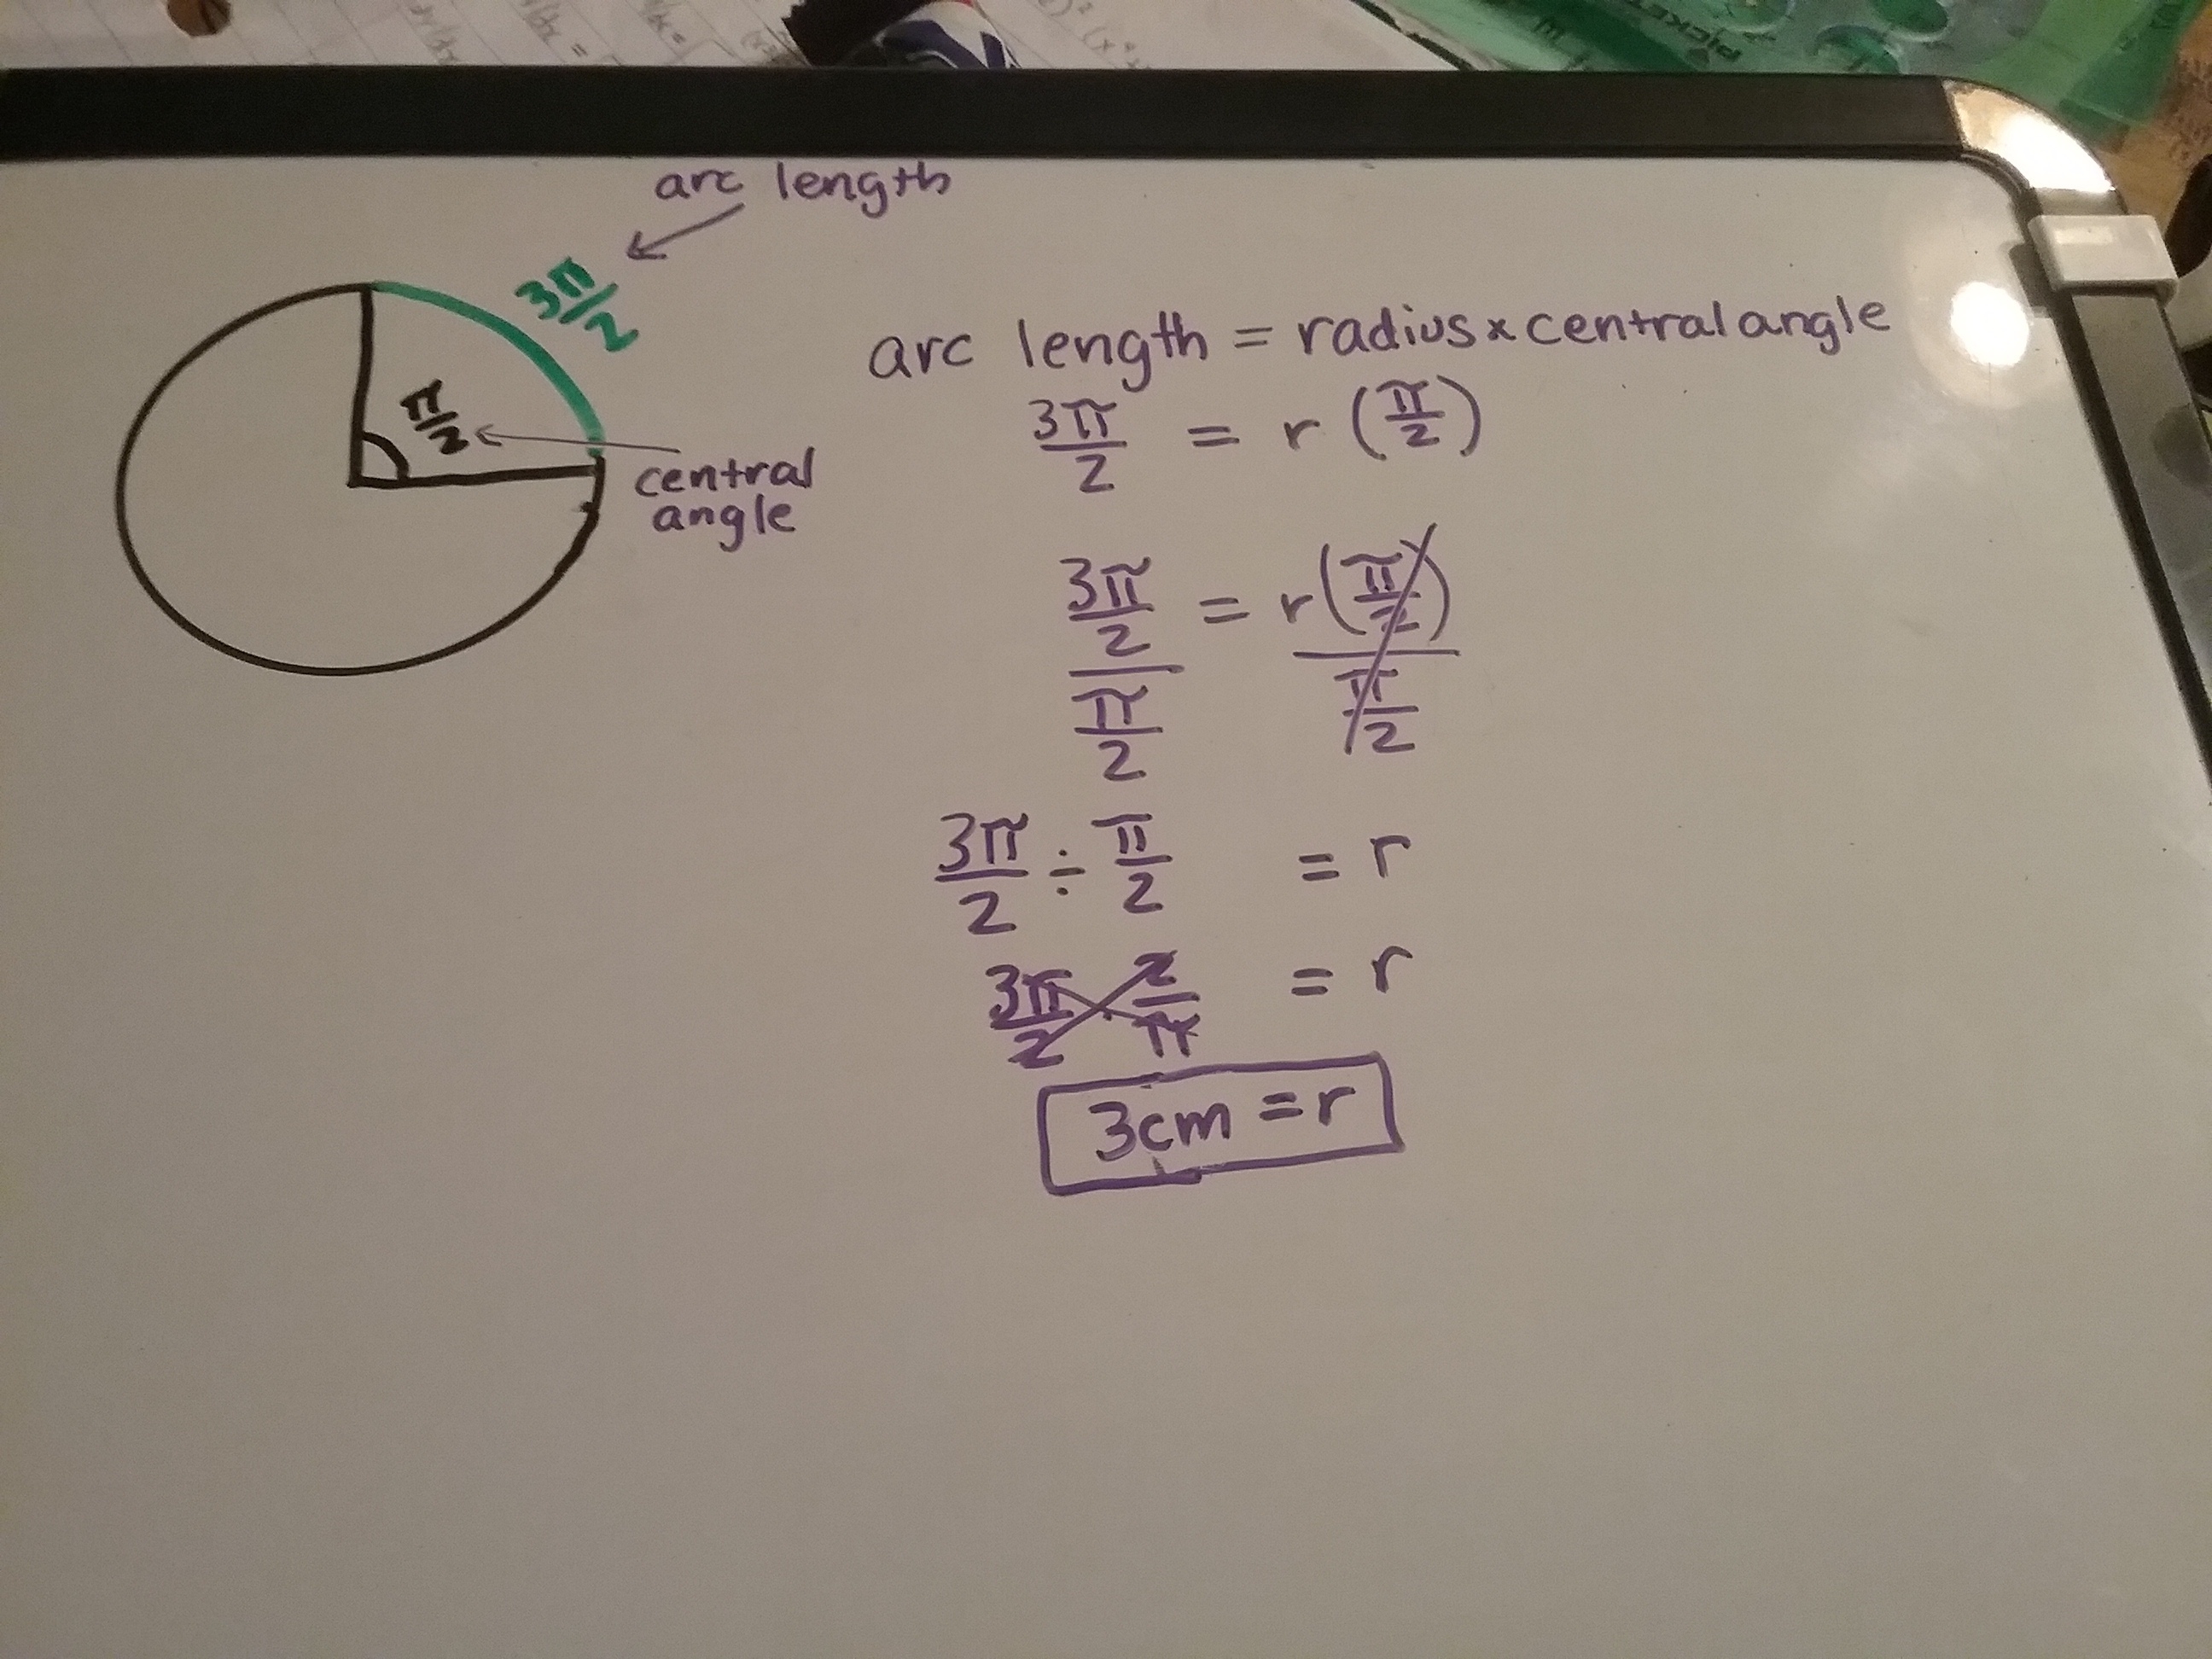 PICKET
arc length
3π/2
π/2
central
angle
arc length = radius x central angle
3π/2 = r (π/2)
3π/2 / π/2 = r(π/2) / π/2
3π/2 ÷ π/2 = r
3π/2 2/π = r
3cm = r